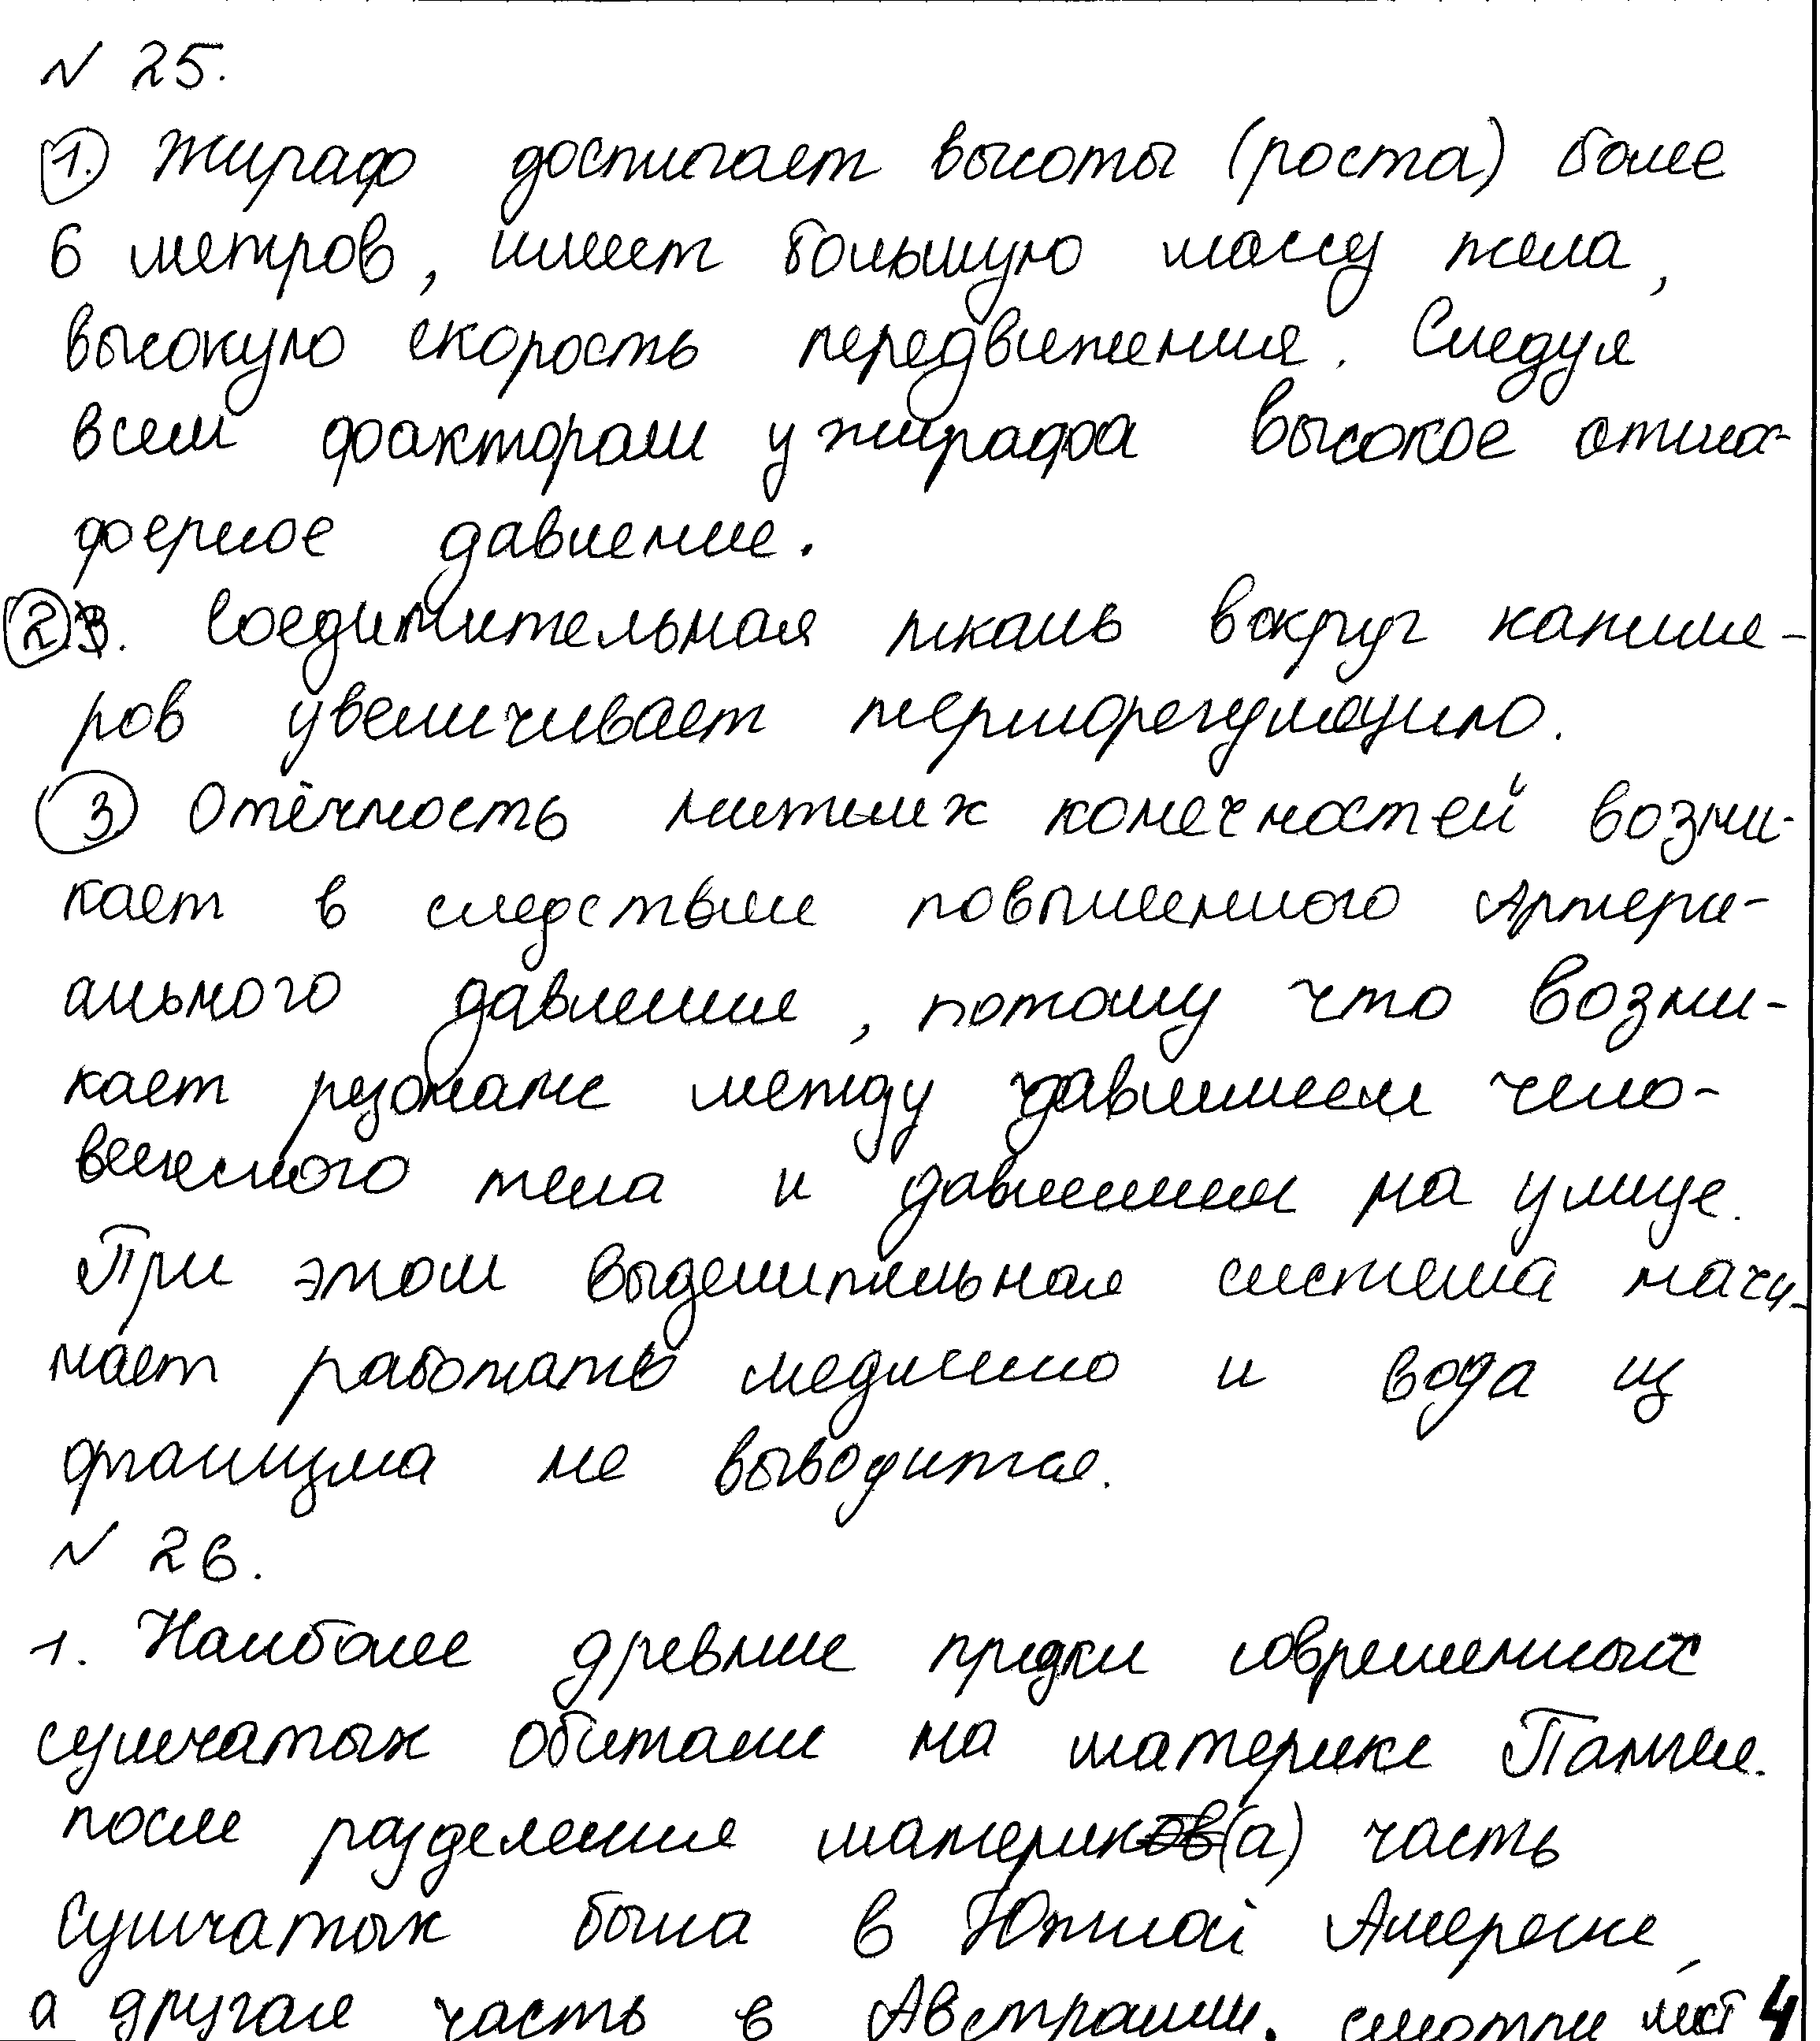 № 25.
1. Жираф достигает высоты (роста) более
6 метров, имеет большую массу тела,
высокую скорость передвижения. Следуя
всем факторам у жирафа высокое атмос-
ферное давление.
2. Соединительная ткань вокруг капиле-
ров увеличивает терморегуляцию.
3 Отёчность нитших конечностей возни-
кает в следствие повышенного Артери-
ального давления, потому что возни-
кает резонанс между давлением чело-
веческого тела и давлением на улице.
При этом выделительная система начи-
нает работать медленно и вода из
организма не выводится.
№ 26.
1. Наиболее древние предки современных
сумчатых обитали на материке Пангее.
после разделения материков(а) часть
Сумчатых была в Южной Америке,
а другая часть в Австралии. смотри лист 4